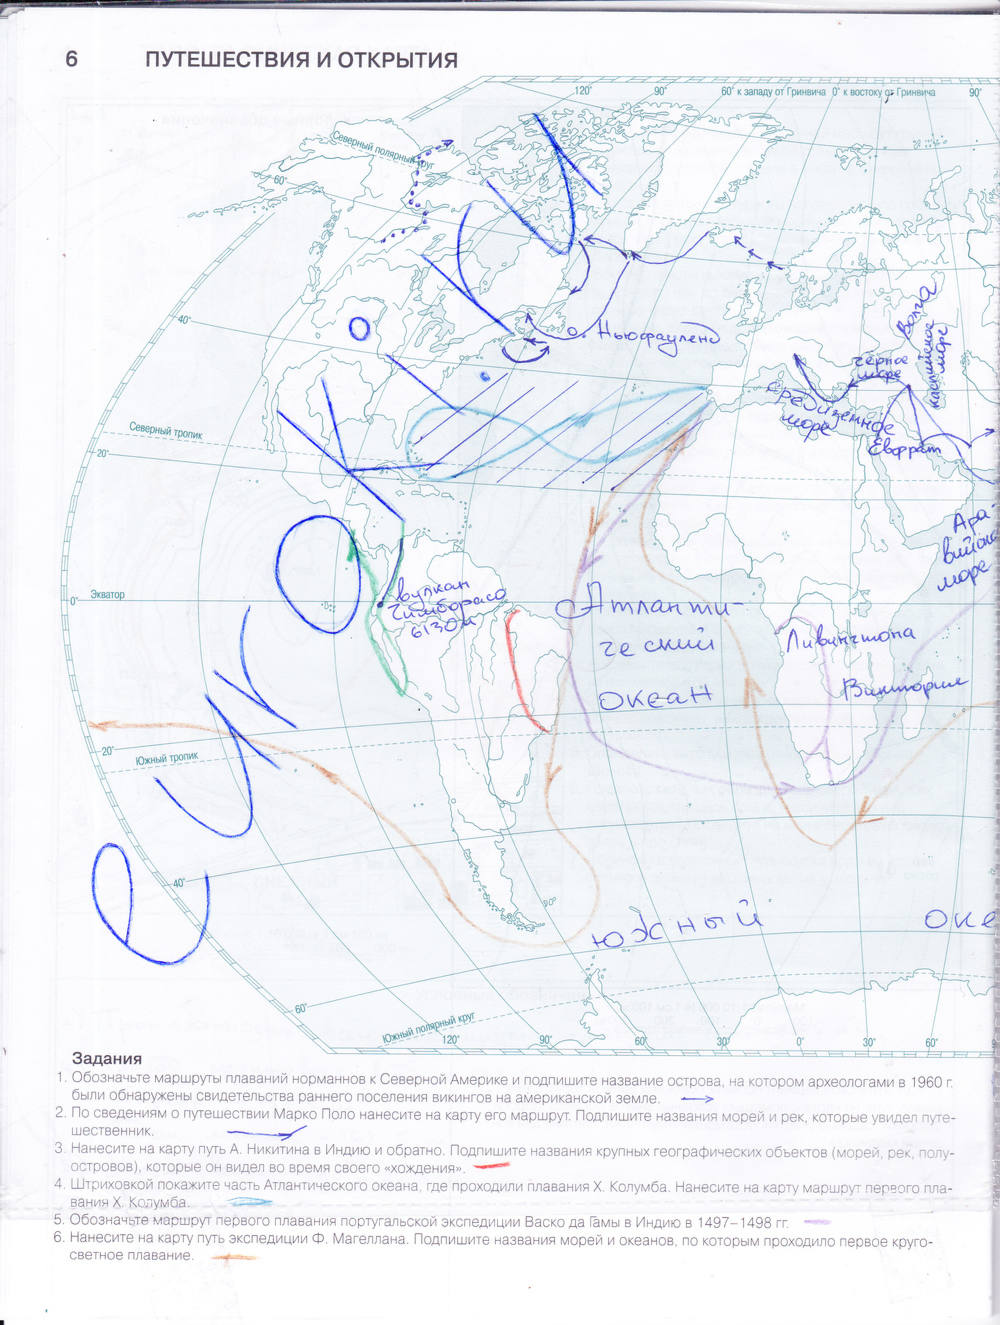 6 ПУТЕШЕСТВИЯ И ОТКРЫТИЯ
120° 90° 60° к западу от Гринвича 0° к востоку от Гринвича 90°
Северный полярный круг
60°
40°
Ньюфауленд
Волга
Каспийское
море
Черное
море
Средиземное
море
Евфрат
Северный тропик
20°
Ара-
вийское
море
Экватор
0°
вулкан
Чимборасо
6130м
Атланти-
ческий
океан
Ливингстона
Виктория
20°
Южный тропик
40°
южный оке
60°
Южный полярный круг
120° 90° 60° 30° 0° 30° 60° 90°
еуроки.ком
Задания
1. Обозначьте маршруты плаваний норманнов к Северной Америке и подпишите название острова, на котором археологами в 1960 г.
были обнаружены свидетельства раннего поселения викингов на американской земле.
2. По сведениям о путешествии Марко Поло нанесите на карту его маршрут. Подпишите названия морей и рек, которые увидел путе-
шественник.
3. Нанесите на карту путь А. Никитина в Индию и обратно. Подпишите названия крупных географических объектов (морей, рек, полу-
островов), которые он видел во время своего «хождения».
4. Штриховкой покажите часть Атлантического океана, где проходили плавания Х. Колумба. Нанесите на карту маршрут первого пла-
вания Х. Колумба.
5. Обозначьте маршрут первого плавания португальской экспедиции Васко да Гамы в Индию в 1497–1498 гг.
6. Нанесите на карту путь экспедиции Ф. Магеллана. Подпишите названия морей и океанов, по которым проходило первое круго-
светное плавание.